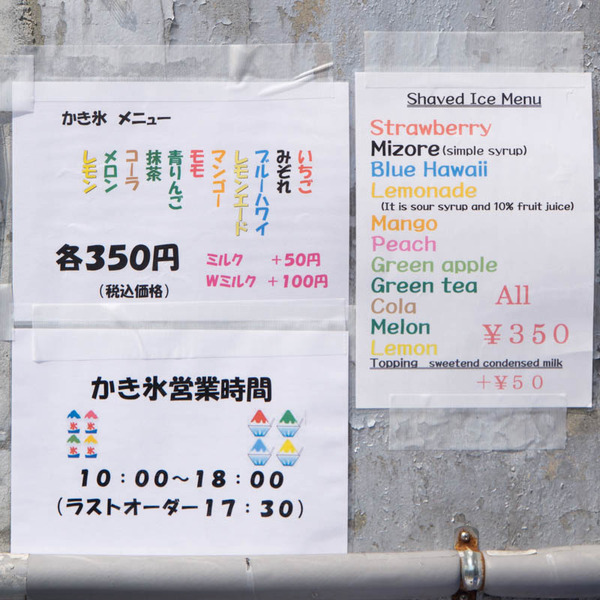 かき氷 メニュー
いちご
みぞれ
ブルーハワイ
レモンエード
マンゴー
モモ
青りんご
抹茶
コーラ
メロン
レモン
各350円
(税込価格)
ミルク +50円
Wミルク +100円
かき氷営業時間
氷 氷
氷 氷
10:00~18:00
(ラストオーダー17:30)
Shaved Ice Menu
Strawberry
Mizore (simple syrup)
Blue Hawaii
Lemonade
(It is sour syrup and 10% fruit juice)
Mango
Peach
Green apple
Green tea
Cola
Melon
Lemon
All
¥350
Topping sweetend condensed milk
+¥50